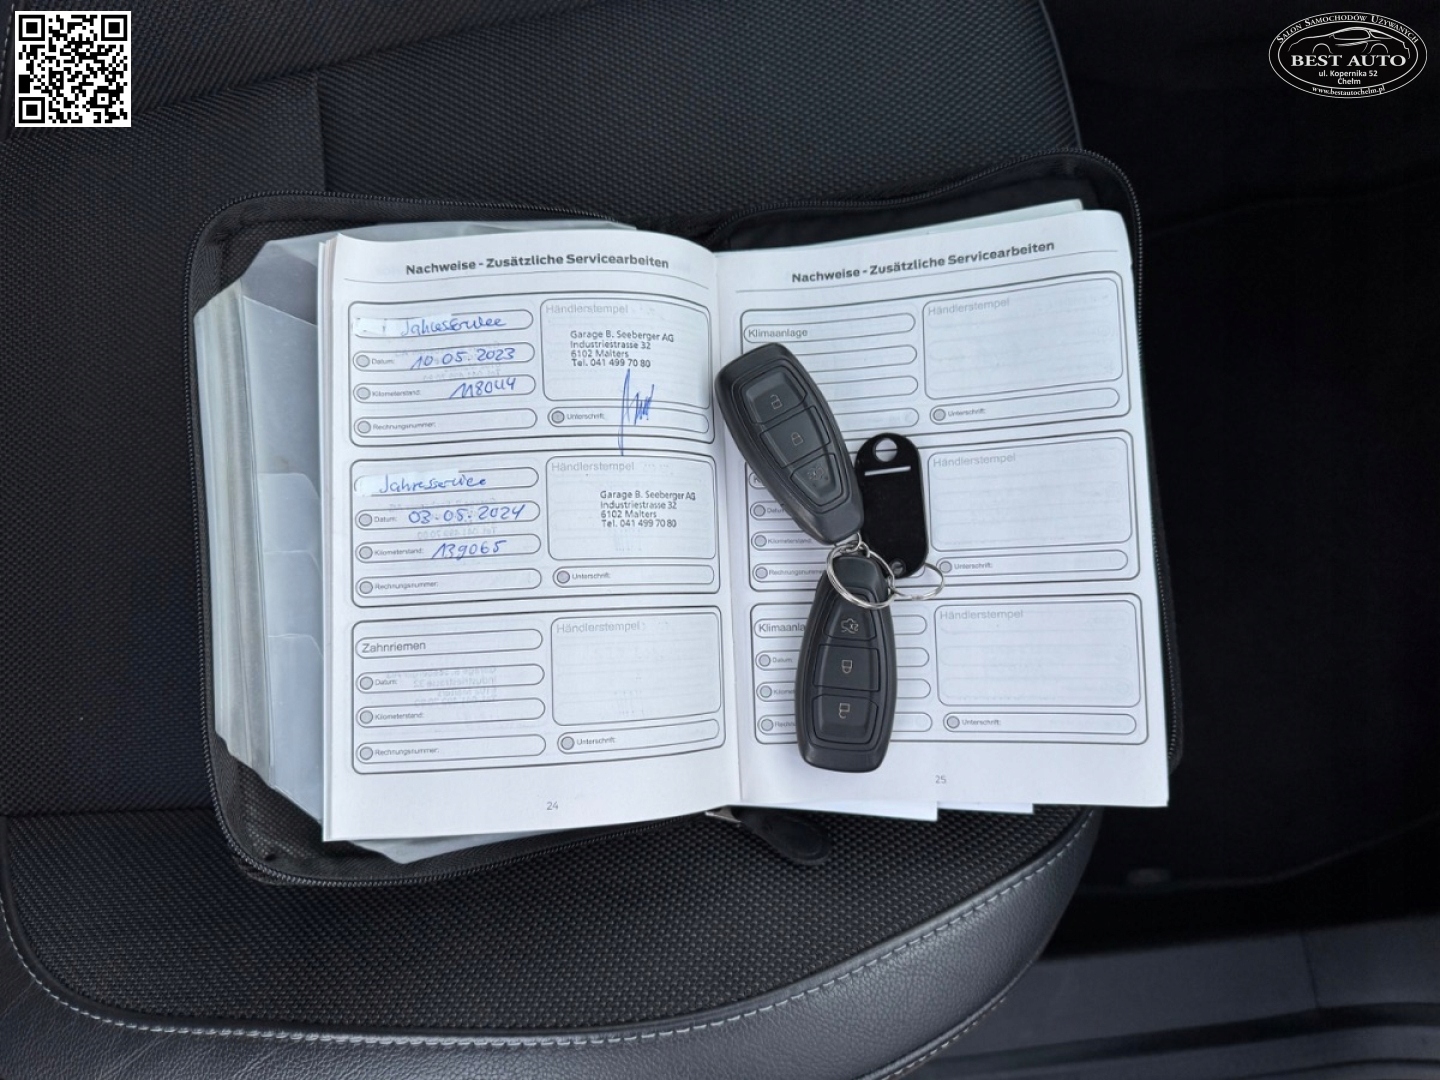 SALON SAMOCHODÓW UŻYWANYCH
BEST AUTO
ul. Kopernika 52
Chełm
www.bestautochelm.pl
Nachweise - Zusätzliche Servicearbeiten
Jahresservice
Datum: 10.05.2023
Kilometerstand: 118044
Rechnungsnummer:
Händlerstempel
Garage B. Seeberger AG
Industriestrasse 32
6102 Malters
Tel. 041 499 70 80
Unterschrift:
Jahresservice
Datum: 03.05.2024
Kilometerstand: 139065
Rechnungsnummer:
Händlerstempel
Garage B. Seeberger AG
Industriestrasse 32
6102 Malters
Tel. 041 499 70 80
Unterschrift:
Zahnriemen
Datum:
Kilometerstand:
Rechnungsnummer:
Händlerstempel
Unterschrift:
24
Nachweise - Zusätzliche Servicearbeiten
Klimaanlage
Händlerstempel
Unterschrift:
Händlerstempel
Kilometerstand:
Unterschrift:
Händlerstempel
Datum:
Unterschrift:
25